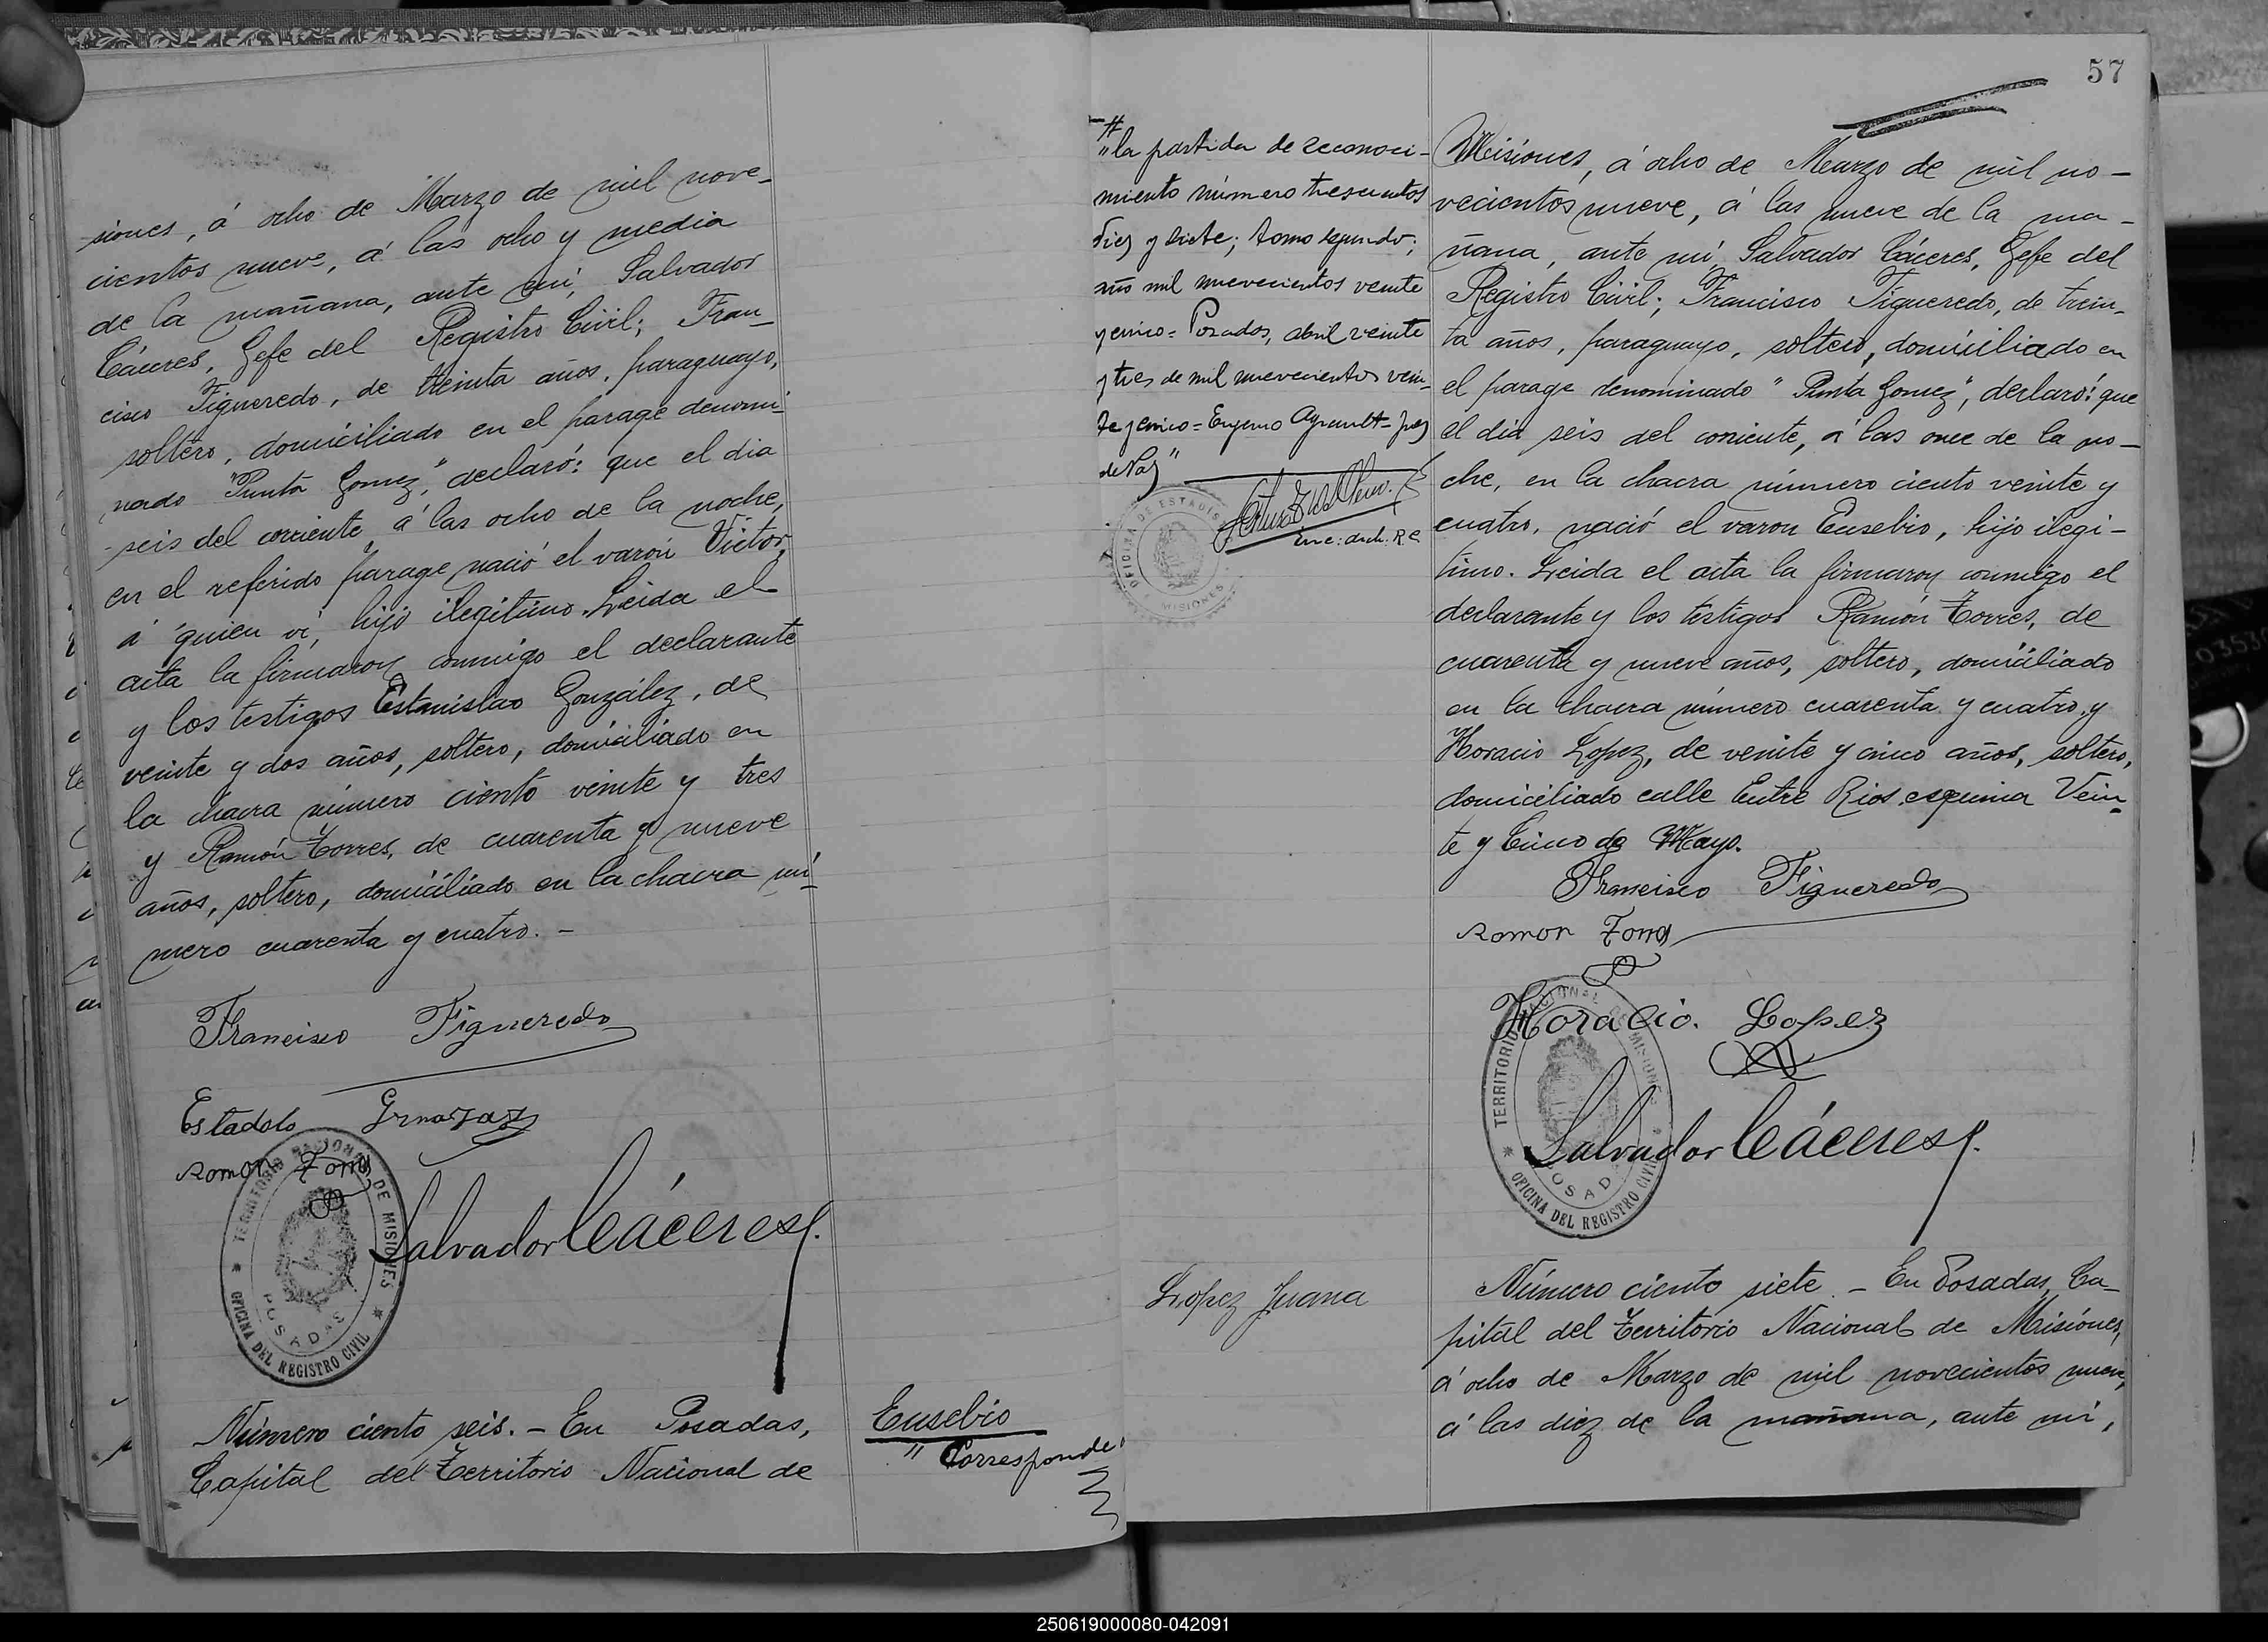 siones, á ocho de Marzo de mil nove-
cientos nueve, á las ocho y media
de la mañana, ante mí, Salvador
Cáceres, Gefe del Registro Civil; Fran-
cisco Figueredo, de treinta años, paraguayo,
soltero, domiciliado en el parage denomi-
nado "Punta Gomez", declaró: que el dia
seis del corriente, á las ocho de la noche,
en el referido parage nació el varón Victor,
á quien ví, hijo ilegitimo. Leida el
acta la firmaron conmigo el declarante
y los testigos Estanislao González, de
veinte y dos años, soltero, domiciliado en
la chacra número ciento veinte y tres
y Ramón Torres, de cuarenta y nueve
años, soltero, domiciliado en la chacra nú-
mero cuarenta y cuatro. -
Francisco Figueredo
Ramon Torres
Salvador Cáceres
TERRITORIO NACIONAL DE MISIONES
POSADAS
OFICINA DEL REGISTRO CIVIL
Número ciento seis. - En Posadas,
Capital del Territorio Nacional de
Eusebio
" Corresponde
57
"la partida de reconoci-
miento número trescientos
diez y siete; tomo segundo;
año mil novecientos veinte
y cinco = Posadas, abril veinte
y tres de mil novecientos vein-
te y cinco = Eugenio Juez
de Paz"
Enc: arch. R.C.
OFICINA DE ESTADIS
MISIONES
Misiones, á ocho de Marzo de mil no-
vecientos nueve, á las nueve de la ma-
ñana, ante mí, Salvador Cáceres, Gefe del
Registro Civil; Francisco Figueredo, de trein-
ta años, paraguayo, soltero, domiciliado en
el parage denominado "Punta Gomez", declaró: que
el dia seis del corriente, á las once de la no-
che, en la chacra número ciento veinte y
cuatro, nació el varon Eusebio, hijo ilegi-
timo. Leida el acta la firmaron conmigo el
declarante y los testigos Ramón Torres, de
cuarenta y nueve años, soltero, domiciliado
en la chacra número cuarenta y cuatro, y
Horacio Lopez, de veinte y cinco años, soltero,
domiciliado calle Entre Rios esquina Vein-
te y Cinco de Mayo.
Francisco Figueredo
Ramon Torres
Horacio Lopez
Salvador Cáceres
TERRITORIO NACIONAL DE MISIONES
POSADAS
OFICINA DEL REGISTRO CIVIL
Lopez Juana
Número ciento siete - En Posadas, Ca-
pital del Territorio Nacional de Misiones,
á ocho de Marzo de mil novecientos nueve,
á las diez de la mañana, ante mí,
250619000080-042091